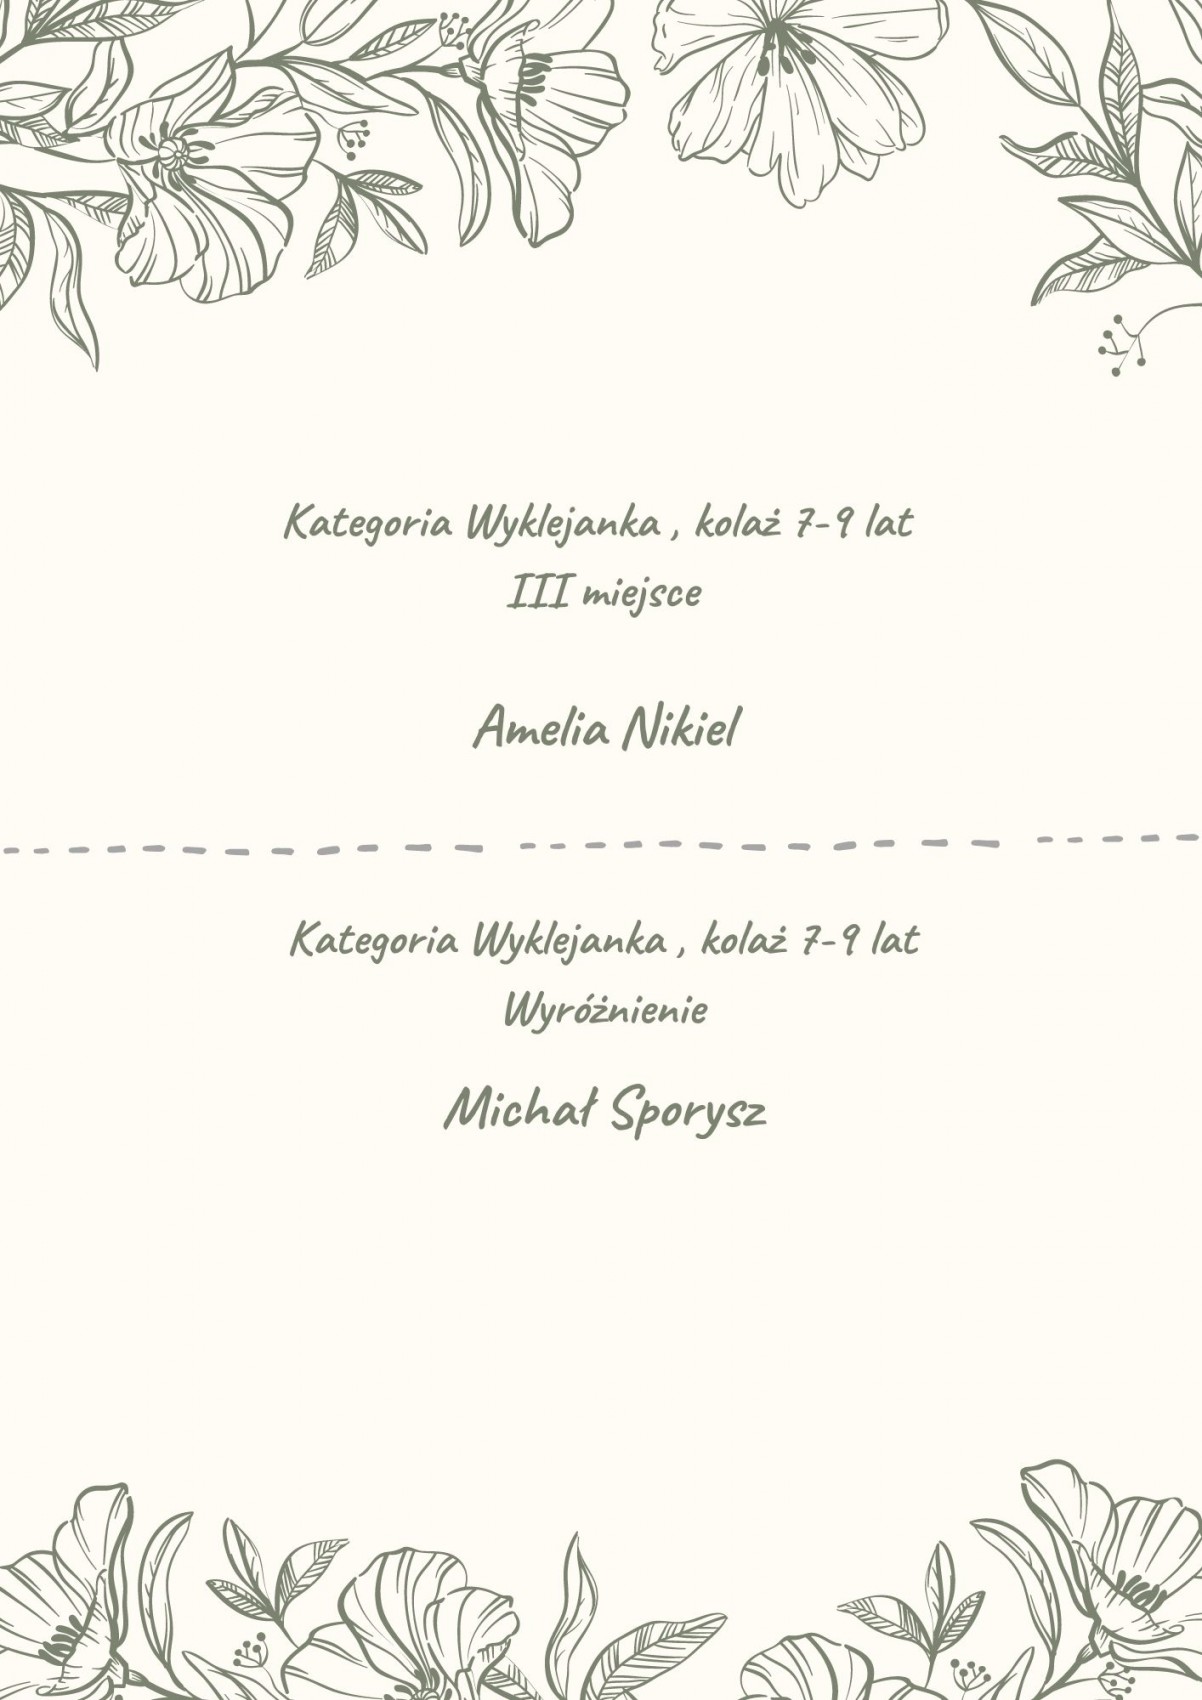 Kategoria Wyklejanka , kolaż 7-9 lat
III miejsce
Amelia Nikiel
Kategoria Wyklejanka , kolaż 7-9 lat
Wyróżnienie
Michał Sporysz